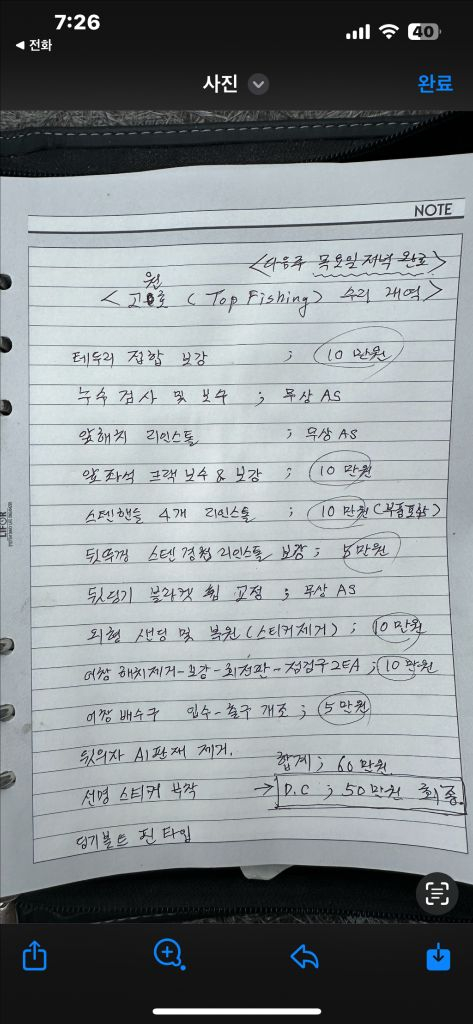 7:26
40
◀ 전화
사진
완료
NOTE
<다음주 목요일저녁 완료>
원
<고호 (Top Fishing) 수리 내역>
테두리 접합 보강 ; 10만원
누수 검사 및 보수 ; 무상 AS
앞해치 리인스톨 ; 무상 AS
앞좌석 크랙 보수 & 보강 ; 10만원
스텐핸들 4개 리인스톨 ; 10만원(부품포함)
뒷뚜껑 스텐 경첩 리인스톨 보강 ; 5만원
뒷덩기 블라켓 휨 교정 ; 무상 AS
외형 샌딩 및 복원(스티커제거) ; 10만원
어창 해치제거-보강-회전판-점검구 2EA ; 10만원
어창 배수구 입수-출구 개조 ; 5만원
뒷의자 AI판재 제거.
합계 ; 60만원.
선명 스티커 부착
→ D.C ; 50만원 최종.
딩기볼트 핀 타입
LIFOR